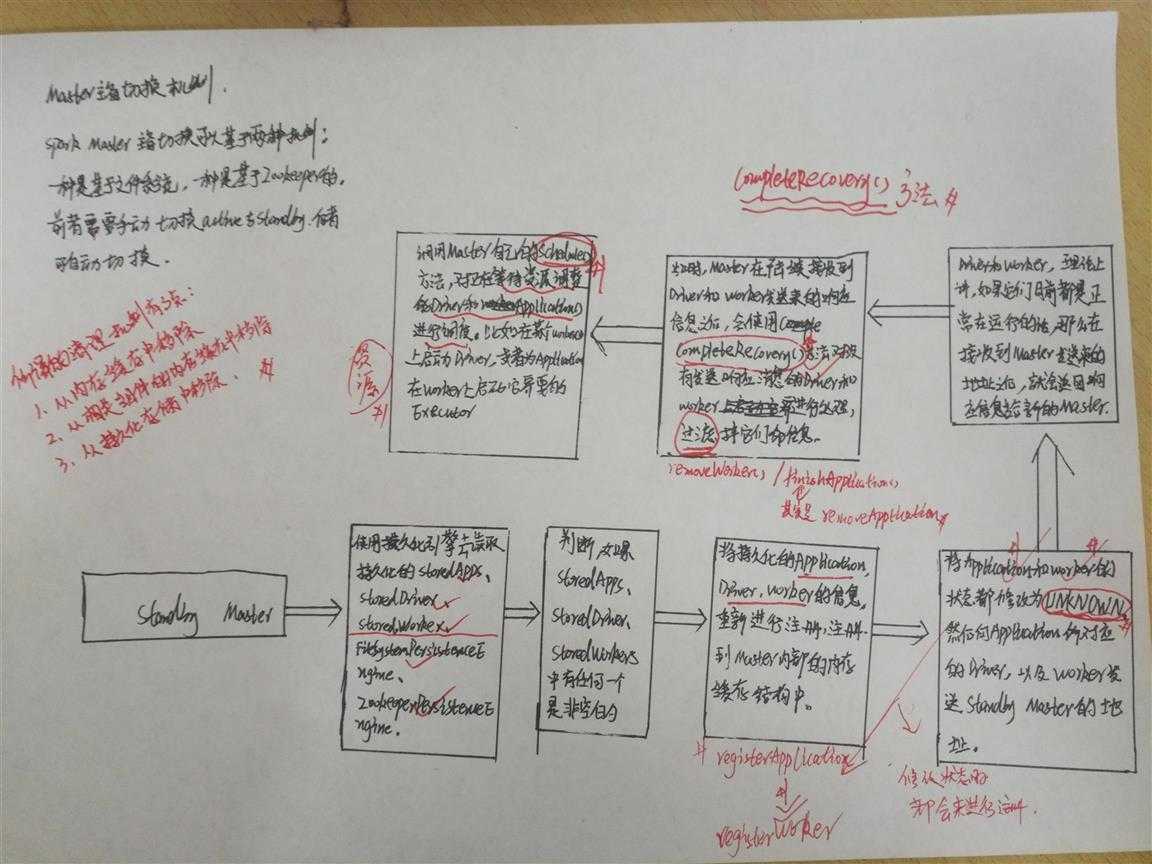 Master主备切换机制.
Spark Master 主备切换可以基于两种机制:
一种是基于文件系统, 一种是基于Zookeeper的,
前者需要手动切换active与standby. 后者
可自动切换.
的清理机制有3点:
1、从内存缓存中移除
2、从相关组件的内存缓存中移除
3、从持久化存储中移除.
Standby Master
使用持久化引擎去读取
持久化的storedApps、
storedDriver、
storedWorker、
FileSystemPersistenceE
ngine、
ZookeeperPersistenceE
ngine.
判断, 如果
storedApps、
storedDriver、
storedWorkers
中有任何一个
是非空的
将持久化的Application,
Driver, Worker的信息,
重新进行注册, 注册
到Master内部的内存
缓存结构中.
registerApplication
registerWorker
将Application和worker的
状态都修改为UNKNOWN,
然后向Application所对应
的Driver, 以及Worker发
送Standby Master的地
址.
修改状态时
都会来进行注册.
Driver和worker, 理论上
讲, 如果它们目前都是正
常在运行的话, 那么在
接收到Master发送来的
地址之后, 就会返回响
应信息给新的Master.
completeRecovery() 方法
此时, Master在陆续接收到
Driver和worker发送来的响应
信息之后, 会使用
completeRecovery()方法对没
有发送响应消息的Driver和
worker 进行处理,
过滤掉它们的信息.
removeWorker() / finishApplication()
其实是 removeApplication
调用Master自己的schedule()
方法, 对正在等待资源调度
的Driver和Application
进行调度, 比如在某个worker
上启动Driver, 或者为Application
在Worker上启动它需要的
Executor
资源